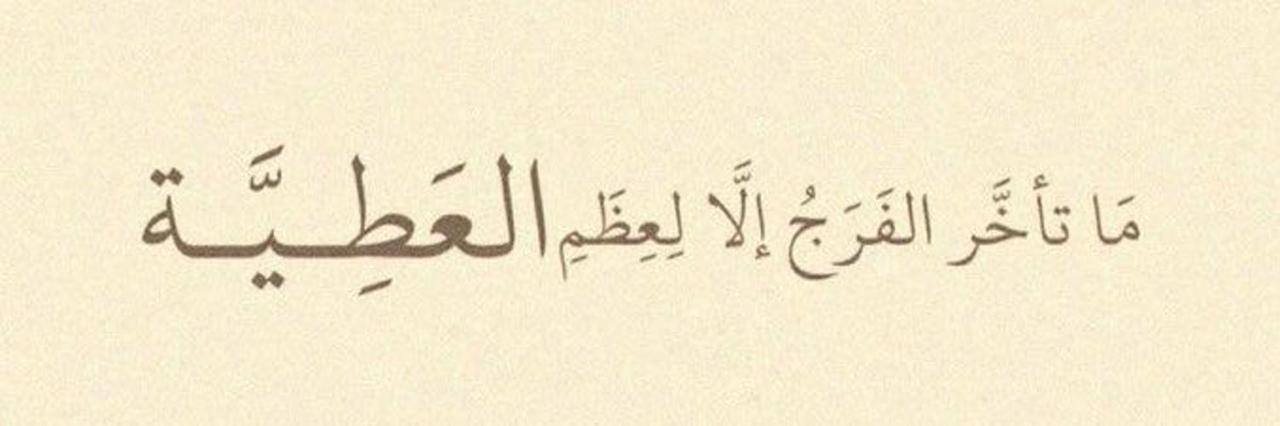 مَا تأخَّر الفَرَجُ إلَّا لِعِظَمِ العَطِيَّة